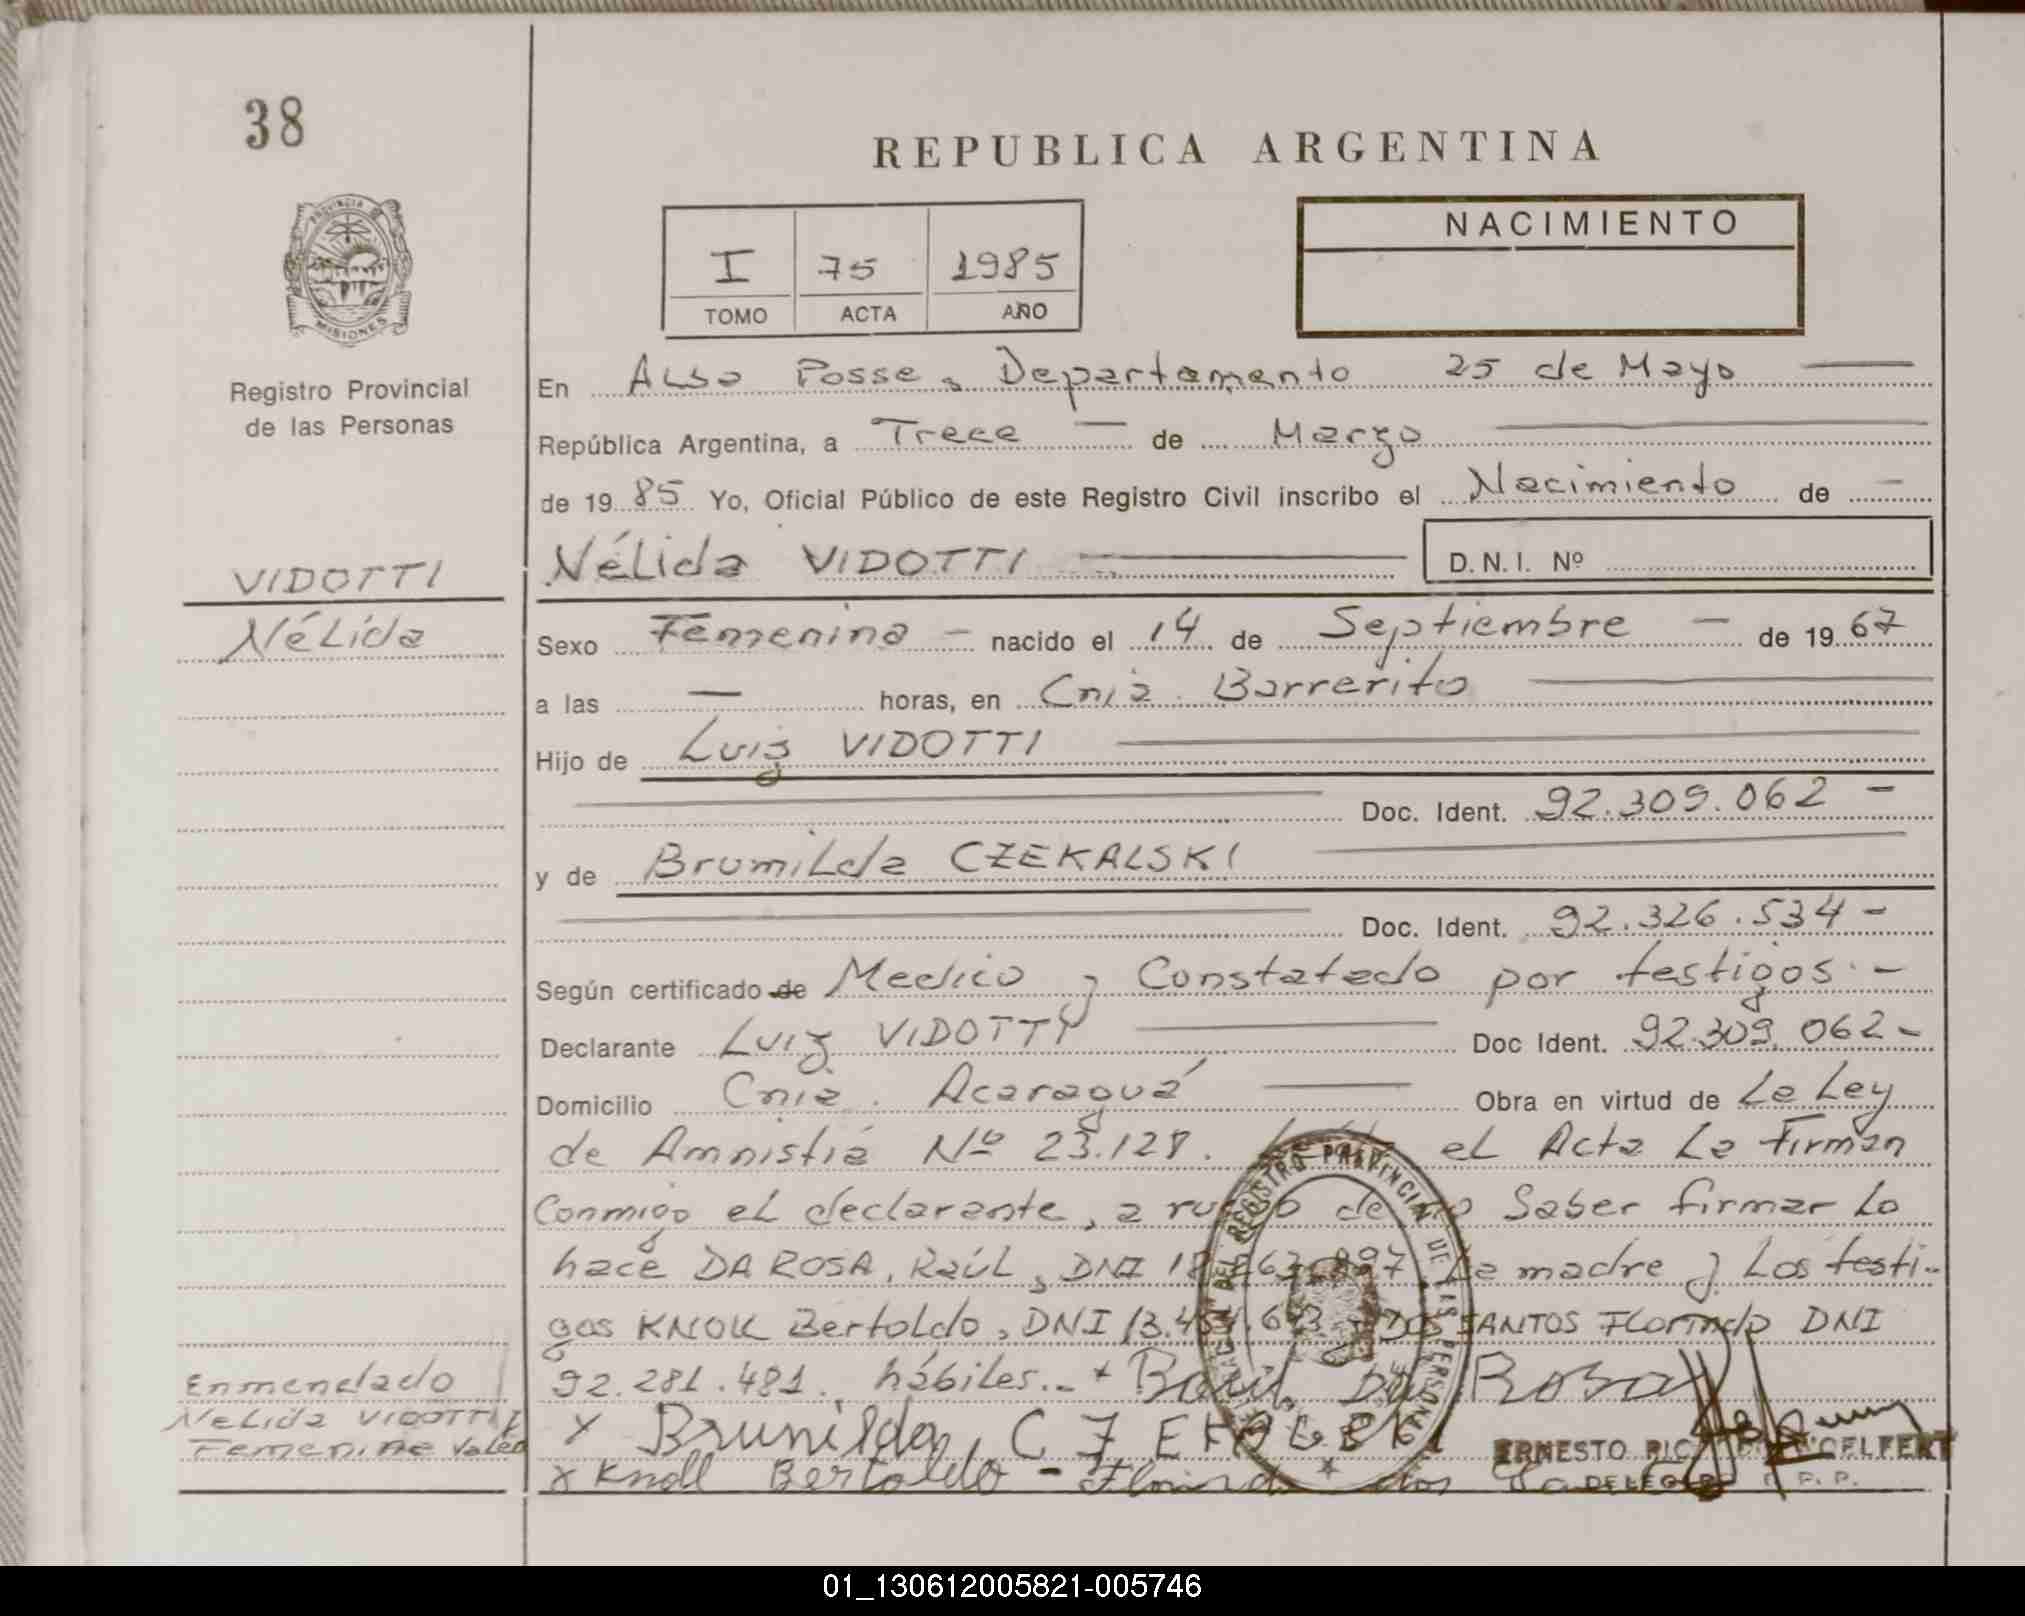 38
REPUBLICA ARGENTINA
PROVINCIA DE
MISIONES
Registro Provincial
de las Personas
I 75 1985
TOMO ACTA AÑO
NACIMIENTO
En Alba Posse, Departamento 25 de Mayo
República Argentina, a Trece de Marzo
de 1985 Yo, Oficial Público de este Registro Civil inscribo el Nacimiento de
Nélida VIDOTTI D.N.I. Nº
VIDOTTI
Nélida
Sexo Femenino nacido el 14 de Septiembre de 1967
a las — horas, en Cnia. Barrerito
Hijo de Luiz VIDOTTI
Doc. Ident. 92.309.062 -
y de Brumilda CZEKALSKI
Doc. Ident. 92.326.534 -
Según certificado de Medico y Constatado por testigos. -
Declarante Luiz VIDOTTY Doc Ident. 92.309.062 -
Domicilio Cnia. Acaraguá Obra en virtud de La Ley
de Amnistia Nº 23.128. el Acta La Firman
Conmigo el declarante, a ruego de no Saber firmar Lo
hace DA ROSA, Raúl, DNI La madre y Los testi-
gos KNOLL Bertoldo, DNI DOS SANTOS Florindo DNI
92.281.481. hábiles.-
Enmendado
Nelida VIDOTTI
Femenine Valen
x Raúl Da Rosa
x Brunilda, CZEKALSKI
x Knoll Bertoldo - Florindo dos
DEL REGISTRO PROVINCIAL DE LAS PERSONAS
ERNESTO
DELEGADO R. P. P.
01_130612005821-005746